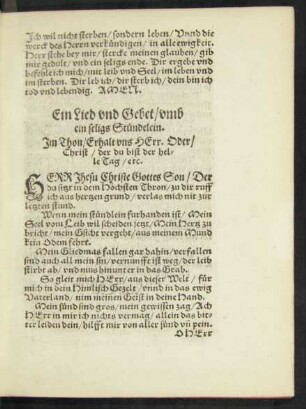 Ich wil nicht sterben / sondern leben / Vnnd die
werck des Herrn verkündigen / in alle ewigkeit.
Herr stehe bey mir / stercke meinen glauben / gib
mir gedult / vnd ein seligs ende. Dir ergebe vnd
befehle ich mich / mit leib vnd Seel / im leben vnd
im sterben. Dir leb ich / dir sterb ich / dein bin ich
tod vnd lebendig. AMEN.
Ein Lied vnd Gebet / vmb
ein seligs Stündelein.
Im Thon / Erhalt vns HErr. Oder /
Christ / der du bist der hel-
le Tag / etc.
HERR Jhesu Christe Gottes Son / Der
du sitzt in dem Höchsten Thron / zu dir ruff
ich aus hertzen grund / verlas mich nit zur
letzten stund.
Wenn mein stündlein fürhanden ist / Mein
Seel vom Leib wil scheiden jetzt / Mein Hertz zu
bricht / mein Gsicht vergeht / aus meinem Mund
kein Odem fehrt.
Mein Gliedmas fallen gar dahin / verfallen
sind auch all mein sin / vernunfft ist weg / der leib
stirbt ab / vnd mus hinunter in das Grab.
So gleit mich HErr / aus dieser Welt / für
mich in dein Himlisch Gezelt / vnnd in das ewig
Vaterland / nim meinen Geist in deine Hand.
Mein sünd sind gros / mein gewissen zag / Ach
HErr in mir ich nichts vermag / allein das bit-
ter leiden dein / hilfft mir von aller sünd vñ pein.
O HErr